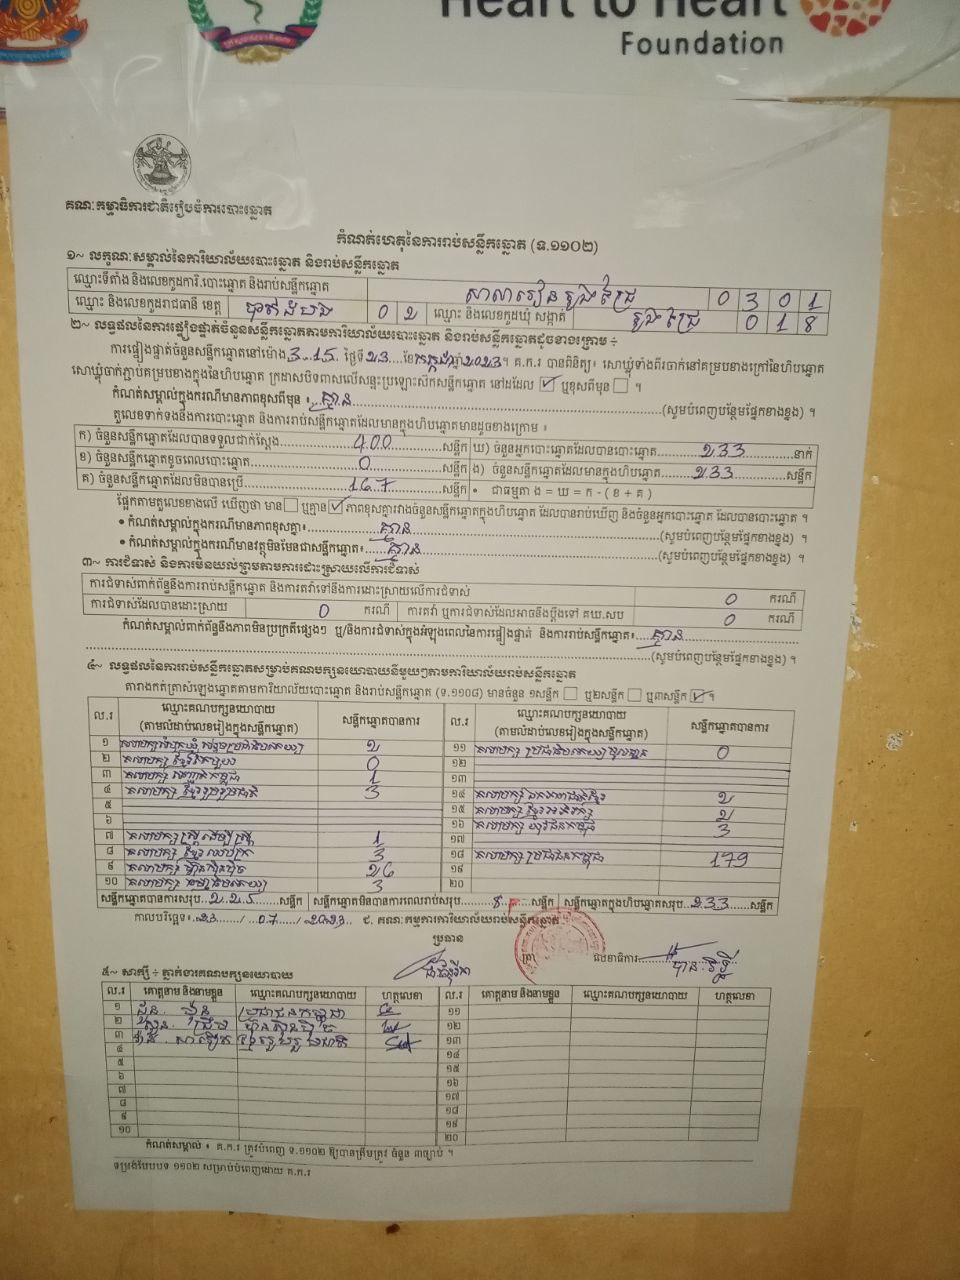 Heart to Heart
Foundation
គណៈកម្មាធិការជាតិរៀបចំការបោះឆ្នោត
កំណត់ហេតុនៃការរាប់សន្លឹកឆ្នោត (ទ.១១០២)
១~ លក្ខណៈសម្គាល់នៃការិយាល័យបោះឆ្នោត និងរាប់សន្លឹកឆ្នោត
ឈ្មោះទីតាំង និងលេខកូដការិ.បោះឆ្នោត និងរាប់សន្លឹកឆ្នោត សាលារៀន 0 3 0 1
ឈ្មោះ និងលេខកូដរាជធានី ខេត្ត បាត់ដំបង 0 2 ឈ្មោះ និងលេខកូដឃុំ សង្កាត់ 0 1 8
២~ លទ្ធផលនៃការផ្ទៀងផ្ទាត់ចំនួនសន្លឹកឆ្នោតតាមការិយាល័យបោះឆ្នោត និងរាប់សន្លឹកឆ្នោតដូចខាងក្រោម ÷
ការផ្ទៀងផ្ទាត់ចំនួនសន្លឹកឆ្នោតនៅម៉ោង 3.15 ថ្ងៃទី 23 ខែ កក្កដា ឆ្នាំ 2023។ គ.ក.រ បានពិនិត្យ៖ សោឃ្មុំទាំងពីរចាក់នៅគម្របខាងក្រៅនៃហិបឆ្នោត
សោឃ្មុំចាក់ភ្ជាប់គម្របខាងក្នុងនៃហិបឆ្នោត ក្រដាសបិទពាសលើសន្ទះប្រឡោះសិកសន្លឹកឆ្នោត នៅដដែល ☑ ឬខុសពីមុន ☐ ។
កំណត់សម្គាល់ក្នុងករណីមានភាពខុសពីមុន ៖ គ្មាន (សូមបំពេញបន្ថែមផ្នែកខាងខ្នង) ។
តួលេខទាក់ទងនឹងការបោះឆ្នោត និងការរាប់សន្លឹកឆ្នោតដែលមានក្នុងហិបឆ្នោតមានដូចខាងក្រោម ៖
ក) ចំនួនសន្លឹកឆ្នោតដែលបានទទួលជាក់ស្តែង 400 សន្លឹក ឃ) ចំនួនអ្នកបោះឆ្នោតដែលបានបោះឆ្នោត 233 នាក់
ខ) ចំនួនសន្លឹកឆ្នោតខូចពេលបោះឆ្នោត 0 សន្លឹក ង) ចំនួនសន្លឹកឆ្នោតដែលមានក្នុងហិបឆ្នោត 233 សន្លឹក
គ) ចំនួនសន្លឹកឆ្នោតដែលមិនបានប្រើ 167 សន្លឹក • ជាធម្មតា ង = ឃ = ក - ( ខ + គ )
ផ្អែកតាមតួលេខខាងលើ ឃើញថា មាន ☐ ឬគ្មាន ☑ ភាពខុសគ្នារវាងចំនួនសន្លឹកឆ្នោតក្នុងហិបឆ្នោត ដែលបានរាប់ឃើញ និងចំនួនអ្នកបោះឆ្នោត ដែលបានបោះឆ្នោត ។
• កំណត់សម្គាល់ក្នុងករណីមានភាពខុសគ្នា៖ គ្មាន (សូមបំពេញបន្ថែមផ្នែកខាងខ្នង) ។
• កំណត់សម្គាល់ក្នុងករណីមានវត្ថុមិនមែនជាសន្លឹកឆ្នោត៖ គ្មាន (សូមបំពេញបន្ថែមផ្នែកខាងខ្នង) ។
៣~ ការជំទាស់ និងការមិនយល់ព្រមតាមការដោះស្រាយលើការជំទាស់
ការជំទាស់ពាក់ព័ន្ធនឹងការរាប់សន្លឹកឆ្នោត និងការតវ៉ាទៅនឹងការដោះស្រាយលើការជំទាស់ 0 ករណី
ការជំទាស់ដែលបានដោះស្រាយ 0 ករណី ការតវ៉ា ឬការជំទាស់ដែលអាចនឹងប្តឹងទៅ គឃ.សប 0 ករណី
កំណត់សម្គាល់ពាក់ព័ន្ធនឹងភាពមិនប្រក្រតីផ្សេងៗ ឬ/និងការជំទាស់ក្នុងអំឡុងពេលនៃការផ្ទៀងផ្ទាត់ និងការរាប់សន្លឹកឆ្នោត៖ គ្មាន
(សូមបំពេញបន្ថែមផ្នែកខាងខ្នង) ។
៤~ លទ្ធផលនៃការរាប់សន្លឹកឆ្នោតសម្រាប់គណបក្សនយោបាយនីមួយៗតាមការិយាល័យរាប់សន្លឹកឆ្នោត
តារាងកត់ត្រាសំឡេងឆ្នោតតាមការិយាល័យបោះឆ្នោត និងរាប់សន្លឹកឆ្នោត (ទ.១១០៨) មានចំនួន ១សន្លឹក ☐ ឬ២សន្លឹក ☐ ឬ៣សន្លឹក ☑ ។
ល.រ ឈ្មោះគណបក្សនយោបាយ (តាមលំដាប់លេខរៀងក្នុងសន្លឹកឆ្នោត) សន្លឹកឆ្នោតបានការ ល.រ ឈ្មោះគណបក្សនយោបាយ (តាមលំដាប់លេខរៀងក្នុងសន្លឹកឆ្នោត) សន្លឹកឆ្នោតបានការ
១ 2 ១១ 0
២ គណបក្ស 0 ១២
៣ គណបក្ស 1 ១៣
៤ គណបក្ស ខ្មែររួបរួមជាតិ 3 ១៤ គណបក្ស 2
៥ ១៥ គណបក្ស ខ្មែរអភិរក្ស 2
៦ ១៦ គណបក្ស យុវជនកម្ពុជា 3
៧ គណបក្ស ស្ត្រីដើម្បីស្ត្រី 1 ១៧
៨ គណបក្ស ខ្មែរឈប់ក្រ 3 ១៨ គណបក្ស ប្រជាជនកម្ពុជា 179
៩ គណបក្ស ហ៊្វុនស៊ិនប៉ិច 26 ១៩
១០ គណបក្ស 3 ២០
សន្លឹកឆ្នោតបានការសរុប 225 សន្លឹក សន្លឹកឆ្នោតមិនបានការពេលរាប់សរុប 8 សន្លឹក សន្លឹកឆ្នោតក្នុងហិបឆ្នោតសរុប 233 សន្លឹក
កាលបរិច្ឆេទ៖ 23 / 07 / 2023 ជ. គណៈកម្មការការិយាល័យរាប់សន្លឹកឆ្នោត
ប្រធាន លេខាធិការ
៥~ សាក្សី ÷ ភ្នាក់ងារគណបក្សនយោបាយ
ល.រ គោត្តនាម និងនាមខ្លួន ឈ្មោះគណបក្សនយោបាយ ហត្ថលេខា ល.រ គោត្តនាម និងនាមខ្លួន ឈ្មោះគណបក្សនយោបាយ ហត្ថលេខា
១ ប្រជាជនកម្ពុជា ១១
២ ហ៊្វុនស៊ិនប៉ិច ១២
៣ ខ្មែររួបរួមជាតិ ១៣
៤ ១៤
៥ ១៥
៦ ១៦
៧ ១៧
៨ ១៨
៩ ១៩
១០ ២០
កំណត់សម្គាល់ ៖ គ.ក.រ ត្រូវបំពេញ ទ.១១០២ ឱ្យបានត្រឹមត្រូវ ចំនួន ៣ច្បាប់ ។
ទម្រង់បែបបទ ១១០២ សម្រាប់បំពេញដោយ គ.ក.រ